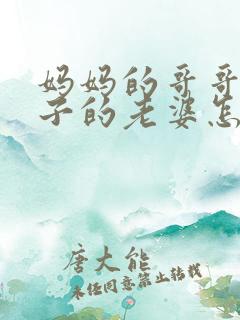 妈妈的哥哥
子的老婆怎
唐大熊
未经同意禁止转载